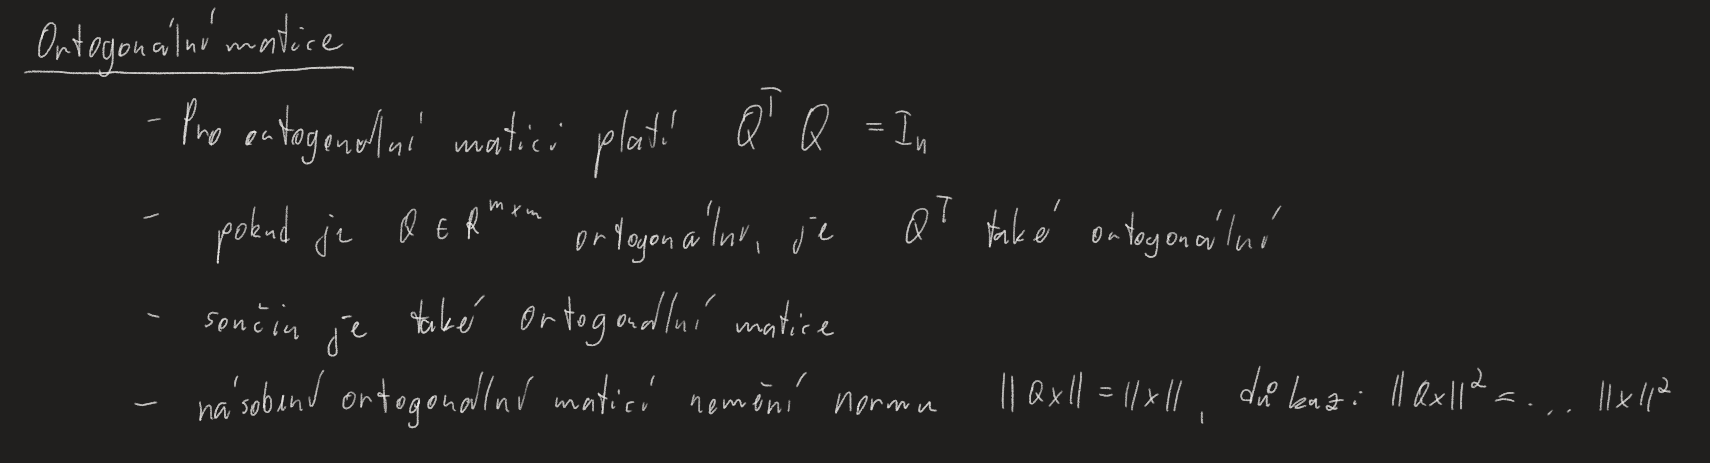 Ortogonální matice
- Pro ortogonální matici platí Q^T Q = I_n
- pokud je Q ∈ R^{m×m} ortogonální, je Q^T také ortogonální
- součin je také ortogonální matice
- násobení ortogonální maticí nemění normu ||Qx|| = ||x||, důkaz: ||Qx||² = ... ||x||²